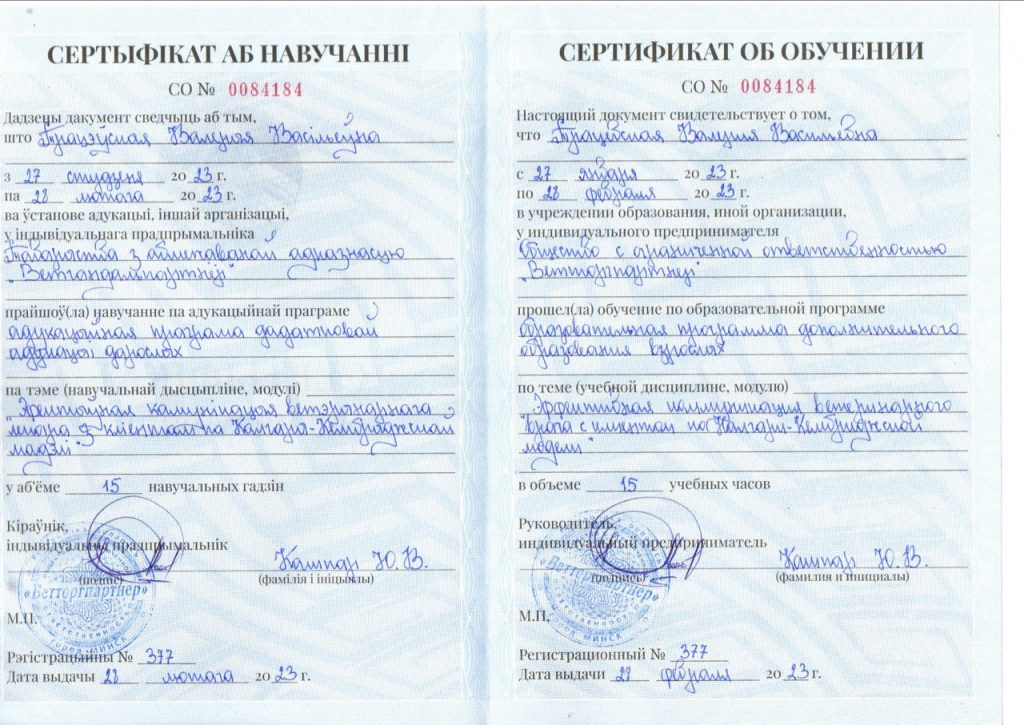 СЕРТЫФІКАТ АБ НАВУЧАННІ
СО № 0084184
Дадзены дакумент сведчыць аб тым,
што Валерыя Васільеўна
з 27 студзеня 2023 г.
па 28 лютага 2023 г.
ва ўстанове адукацыі, іншай арганізацыі,
у індывідуальнага прадпрымальніка
Таварыства з абмежаванай адказнасцю
"Ветгандальпартнёр"
прайшоў(ла) навучанне па адукацыйнай праграме
адукацыйная праграма дадатковай
адукацыі дарослых
па тэме (навучальнай дысцыпліне, модулі)
"Эфектыўная камунікацыя ветэрынарнага
з кліентам па Калгары-Кембрыджскай
мадэлі"
у аб'ёме 15 навучальных гадзін
Кіраўнік,
індывідуальны прадпрымальнік
Кашпар Ю.В.
(подпіс) (фамілія і ініцыялы)
«Ветторгпартнер»
ГОРОД МИНСК
М.П.
Рэгістрацыйны № 377
Дата выдачы 28 лютага 2023 г.
СЕРТИФИКАТ ОБ ОБУЧЕНИИ
СО № 0084184
Настоящий документ свидетельствует о том,
что Валерия Васильевна
с 27 января 2023 г.
по 28 февраля 2023 г.
в учреждении образования, иной организации,
у индивидуального предпринимателя
Общество с ограниченной ответственностью
"Ветторгпартнер"
прошел(ла) обучение по образовательной программе
образовательная программа дополнительного
образования взрослых
по теме (учебной дисциплине, модулю)
"Эффективная коммуникация ветеринарного
врача с клиентом по Калгари-Кембриджской
модели"
в объеме 15 учебных часов
Руководитель,
индивидуальный предприниматель
Кашпар Ю.В.
(подпись) (фамилия и инициалы)
«Ветторгпартнер»
ГОРОД МИНСК
М.П.
Регистрационный № 377
Дата выдачи 28 февраля 2023 г.